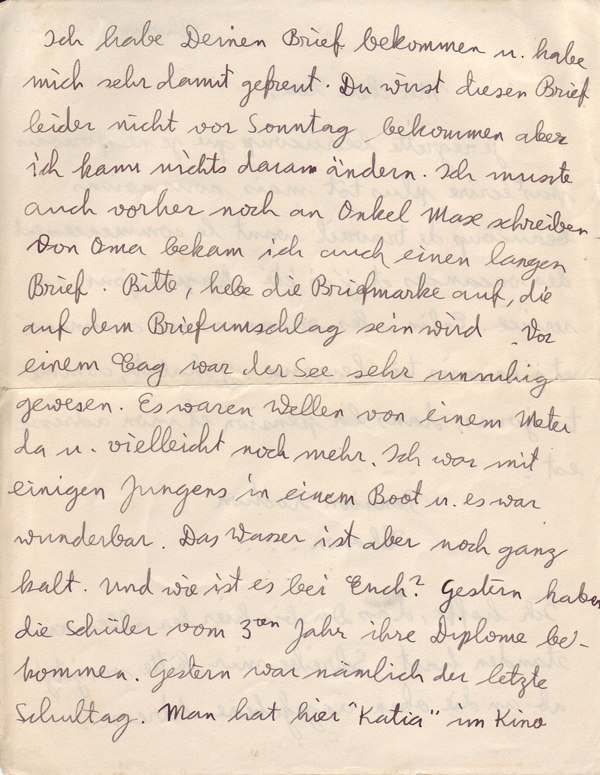 Ich habe Deinen Brief bekommen u. habe
mich sehr damit gefreut. Du wirst diesen Brief
leider nicht vor Sonntag bekommen aber
ich kann nichts daran ändern. Ich musste
auch vorher noch an Onkel Max schreiben
Von Oma bekam ich auch einen langen
Brief. Bitte, hebe die Briefmarke auf, die
auf dem Briefumschlag sein wird. Vor
einem Tag war der See sehr unruhig
gewesen. Es waren Wellen von einem Meter
da u. vielleicht noch mehr. Ich war mit
einigen Jungens in einem Boot u. es war
wunderbar. Das Wasser ist aber noch ganz
kalt. Und wie ist es bei Euch? Gestern haben
die Schüler vom 3ten Jahr ihre Diplome be-
kommen. Gestern war nämlich der letzte
Schultag. Man hat hier "Katia" im Kino